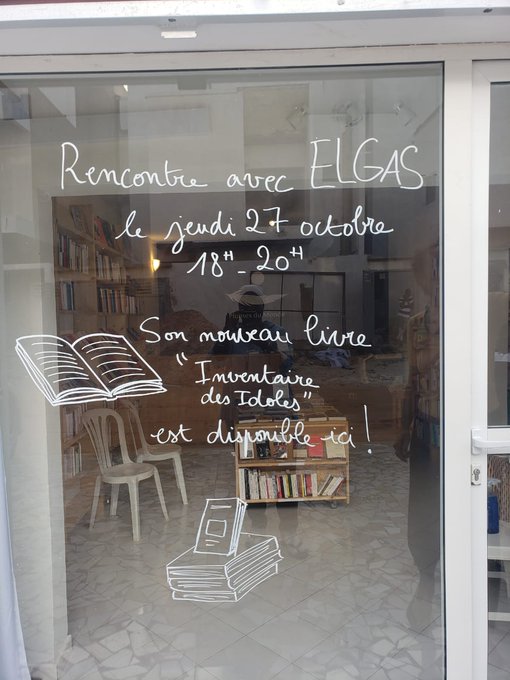 Rencontre avec ELGAS
le jeudi 27 octobre
18H-20H
Plumes du Monde
Son nouveau livre
"Inventaire
des Idoles"
est disponible ici !